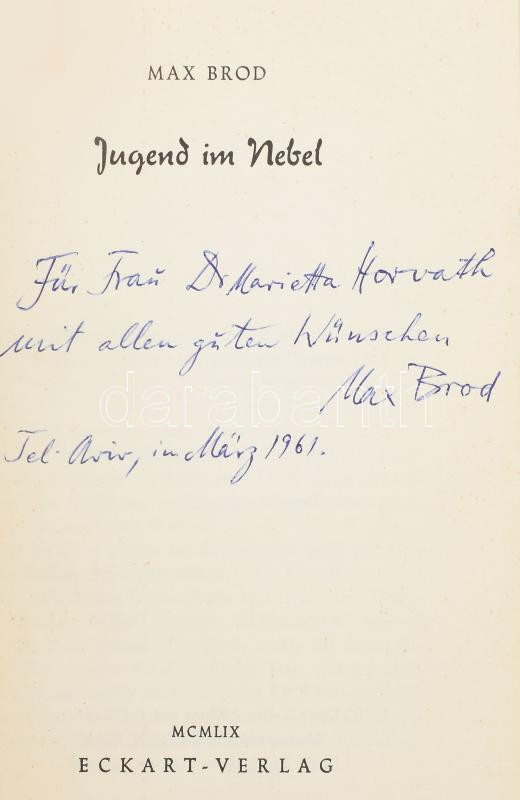 MAX BROD
Jugend im Nebel
Für Frau Dr Marietta Horvath
mit allen guten Wünschen
Max Brod
darabanth
Tel Aviv, im März 1961.
MCMLIX
ECKART-VERLAG